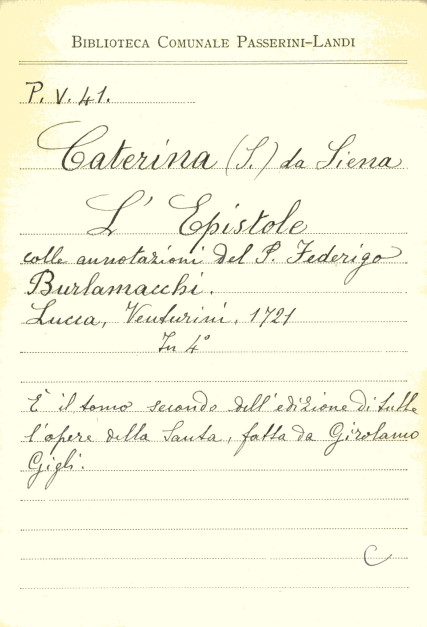 BIBLIOTECA COMUNALE PASSERINI-LANDI
P. V. 41.
Caterina (S.) da Siena
L' Epistole
colle annotazioni del P. Federigo
Burlamacchi.
Lucca, Venturini, 1721
In 4°
È il tomo secondo dell'edizione di tutte
l'opere della Santa, fatta da Girolamo
Gigli.
C